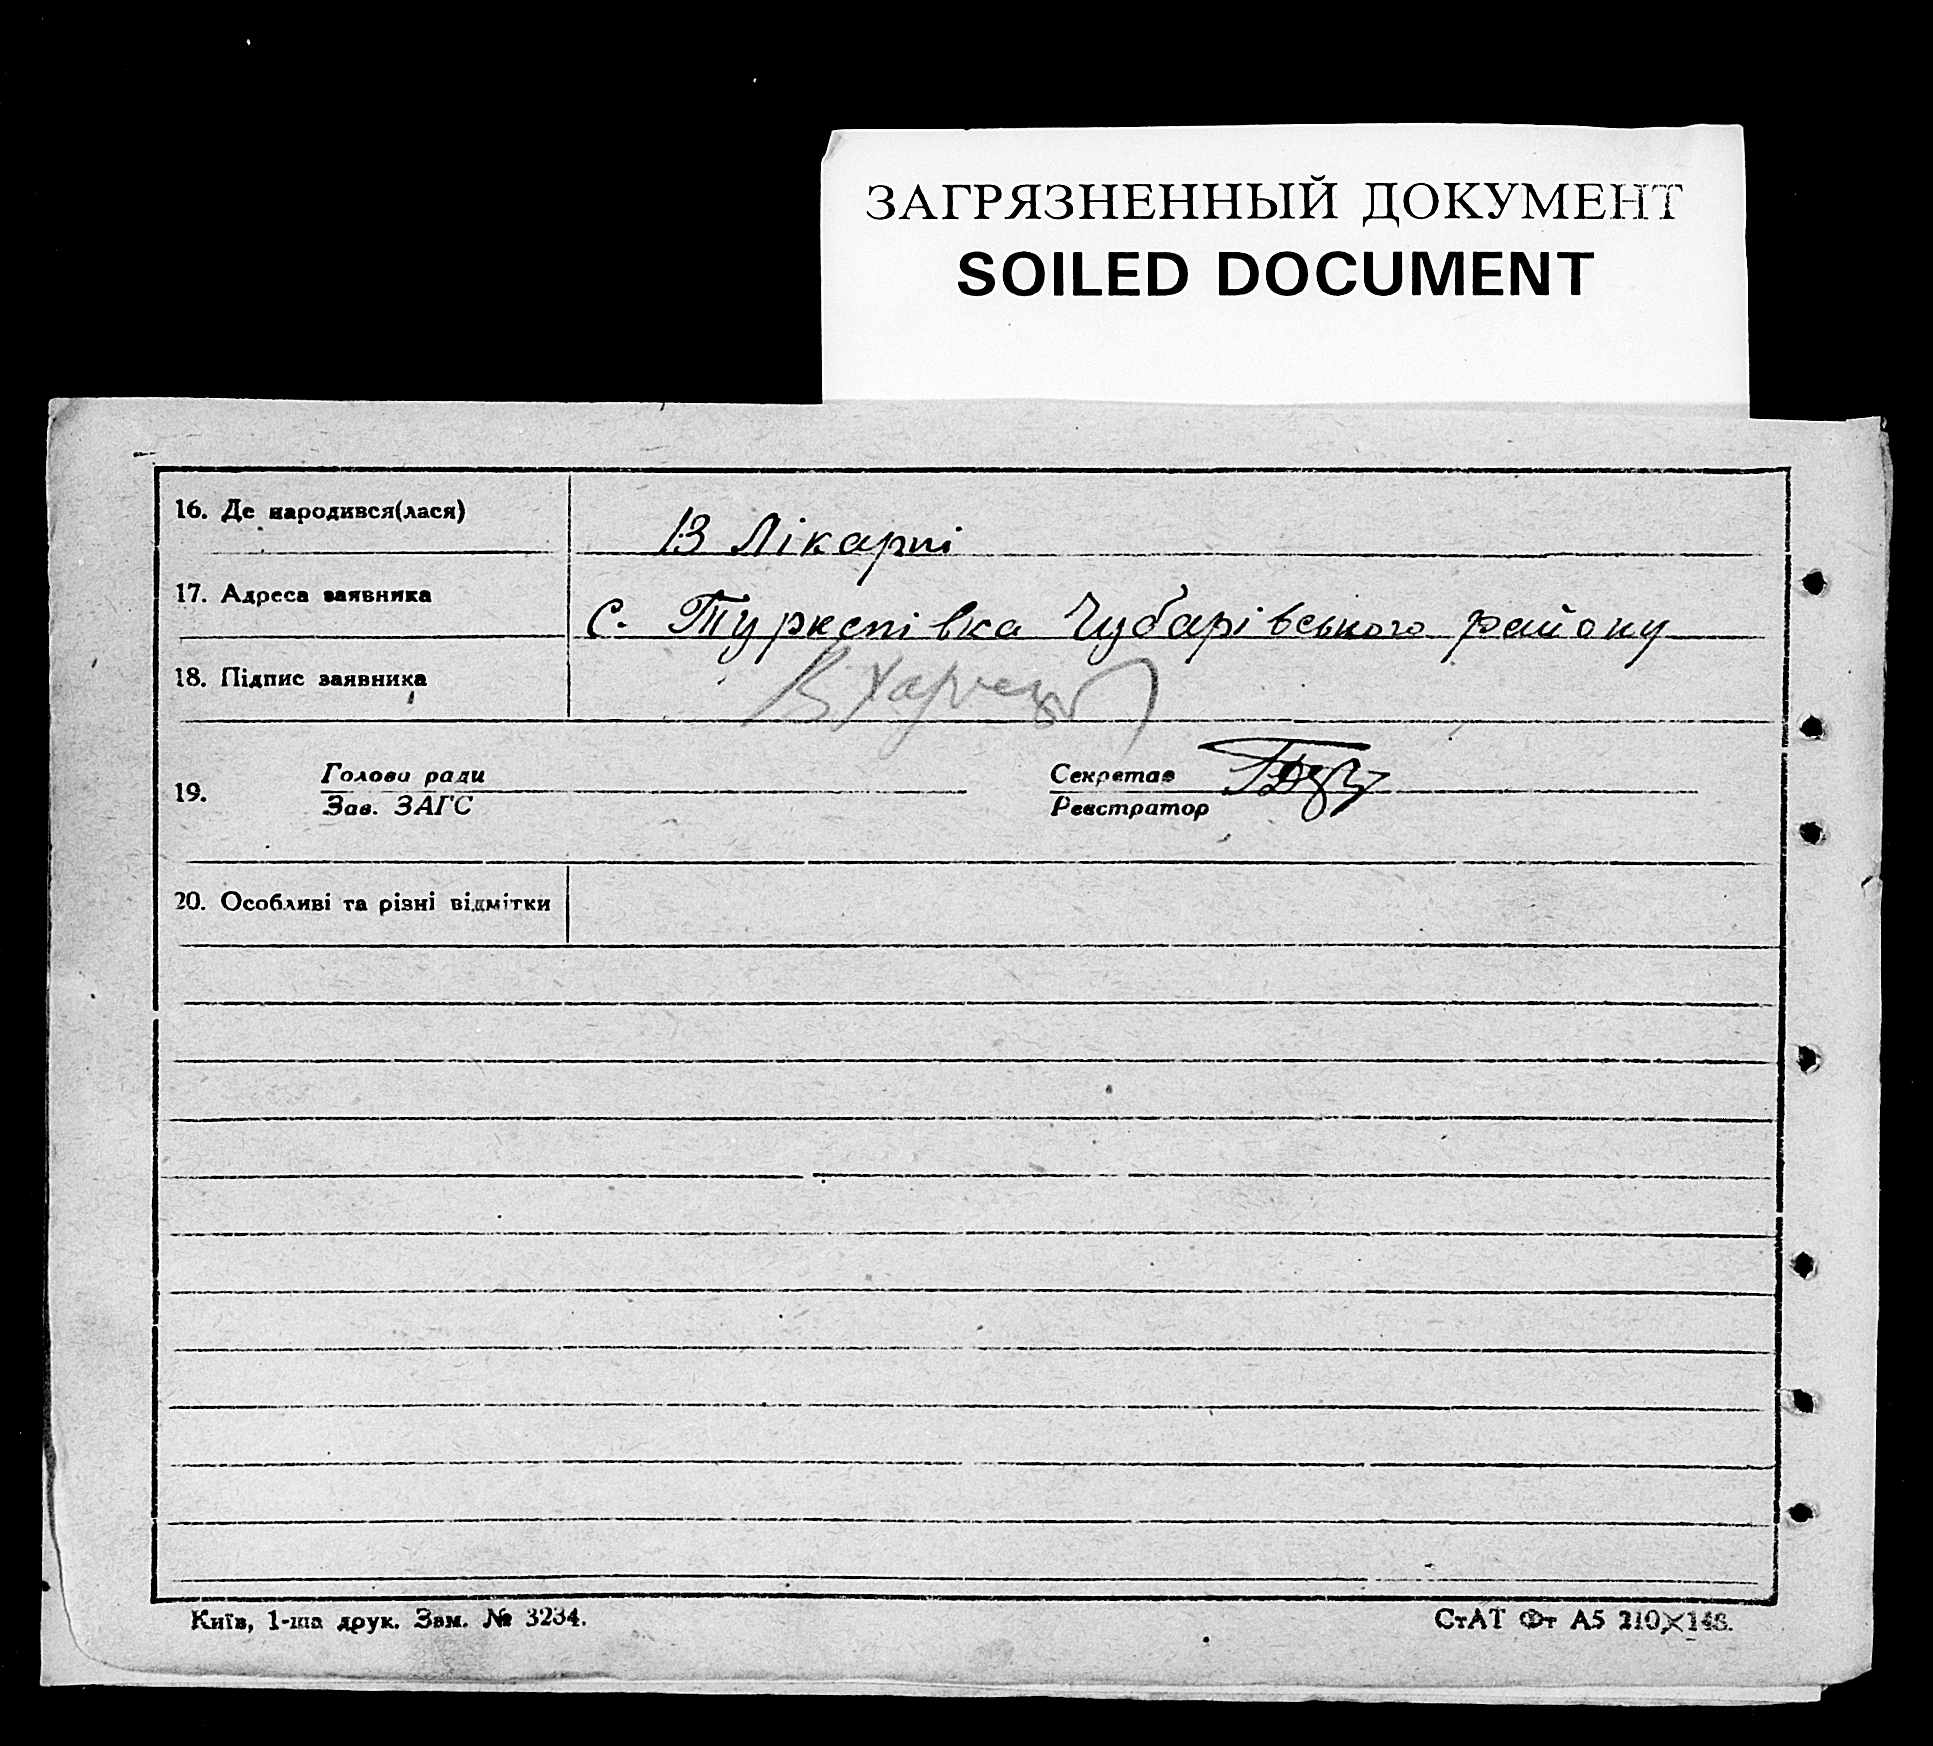 ЗАГРЯЗНЕННЫЙ ДОКУМЕНТ
SOILED DOCUMENT
16. Де народився(лася)
ІЗ Лікарні
17. Адреса заявника
С. Туркенівка Чубарівського району
18. Підпис заявника
19.
Голова ради
Зав. ЗАГС
Секретар
Реєстратор
20. Особливі та різні відмітки
Київ, 1-ша друк. Зам. № 3234.
СтАТ Фт А5 210×148.